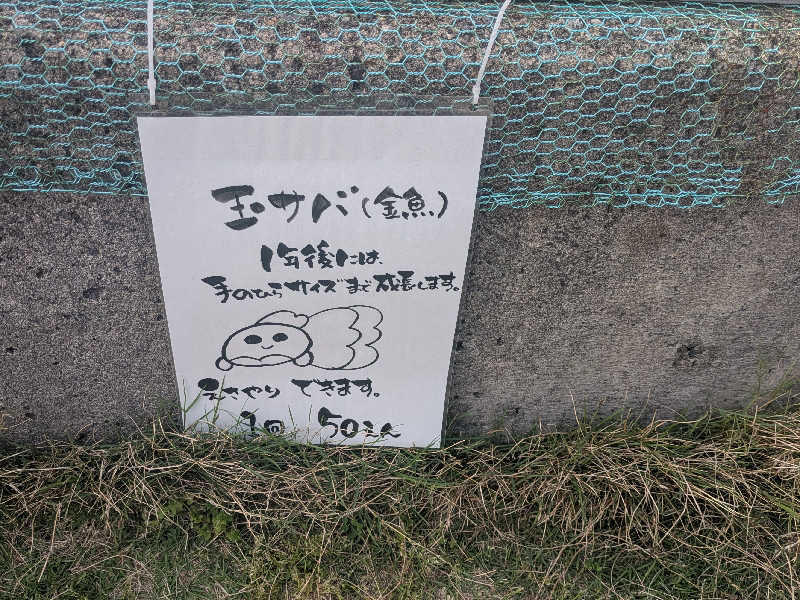 玉サバ(金魚)
1年後には、
手のひらサイズまで成長します。
えさやりできます。
1回 50えん